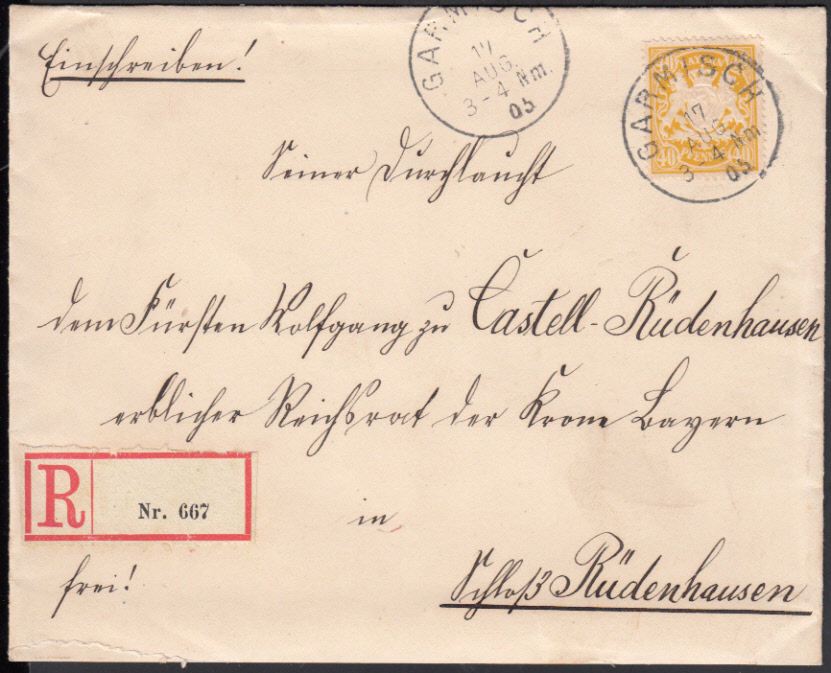 Einschreiben!
GARMISCH
17
AUG.
3-4 Nm.
05
BAYERN
40 40
PFENNIG
GARMISCH
17
AUG.
3-4 Nm.
05
Seiner Durchlaucht
dem Fürsten Wolfgang zu Castell-Rüdenhausen
erblicher Reichsrat der Krone Bayern
R Nr. 667
in
frei!
Schloß Rüdenhausen